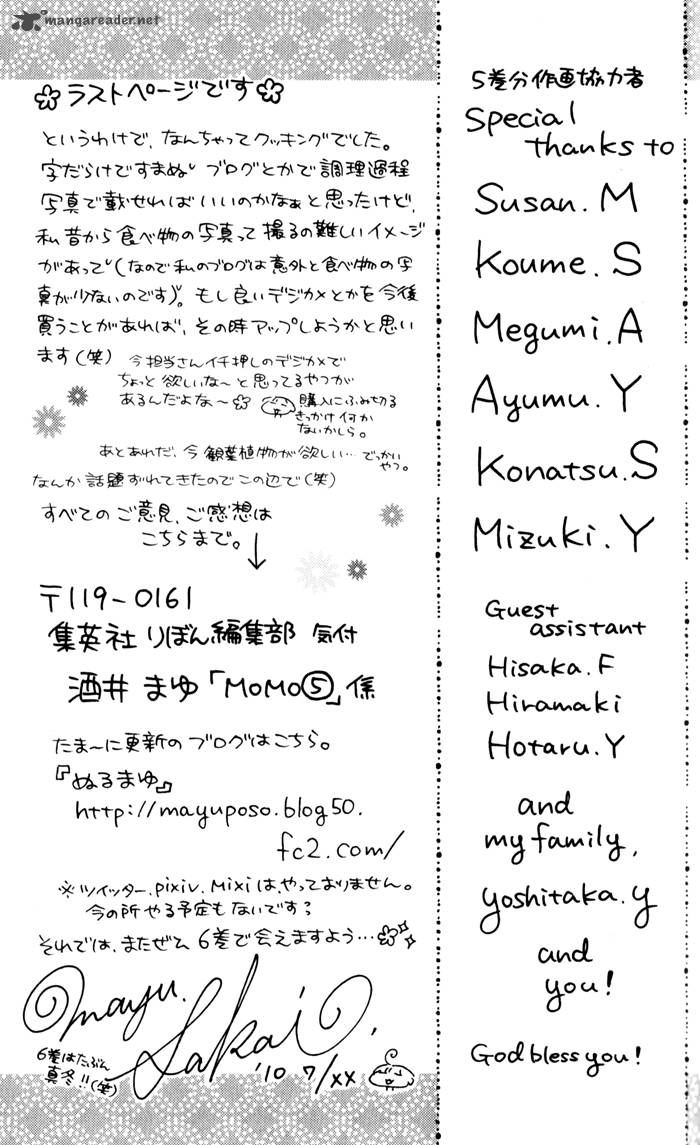 mangareader.net
ラストページです
というわけで、なんちゃってクッキングでした。
字だらけですまぬ ブログとかで調理過程
写真で載せればいいのかなぁと思ったけど、
私昔から食べ物の写真って撮るの難しいイメージ
があって(なので私のブログは意外と食べ物の写
真が少ないのです)。もし良いデジカメとかを今後
買うことがあれば、その時アップしようかと思い
ます(笑)
今担当さんイチ押しのデジカメで
ちょっと欲しいな〜と思ってるやつが
あるんだよな〜
購入にふみ切る
きっかけ何か
ないかしら。
あとあれだ、今観葉植物が欲しい…でっかい
やつ。
なんか話題ずれてきたのでこの辺で(笑)
すべてのご意見、ご感想は
こちらまで。↓
〒119-0161
集英社 りぼん編集部 気付
酒井 まゆ「MoMo⑤」係
たま〜に更新のブログはこちら。
『ぬるまゆ』
http://mayuposo.blog50.
fc2.com/
※ツイッター、pixiv、Mixiは、やっておりません。
今の所やる予定もないです〜
それでは、またぜひ 6巻で会えますよう…
mayu.
Sakai.
'10 7/xx
6巻はたぶん
真冬!!(笑)
5巻分作画協力者
Special
thanks to
Susan. M
Koume. S
Megumi. A
Ayumu. Y
Konatsu. S
Mizuki. Y
Guest
assistant
Hisaka. F
Hiramaki
Hotaru. Y
and
my family,
yoshitaka. y
and
you!
God bless you!